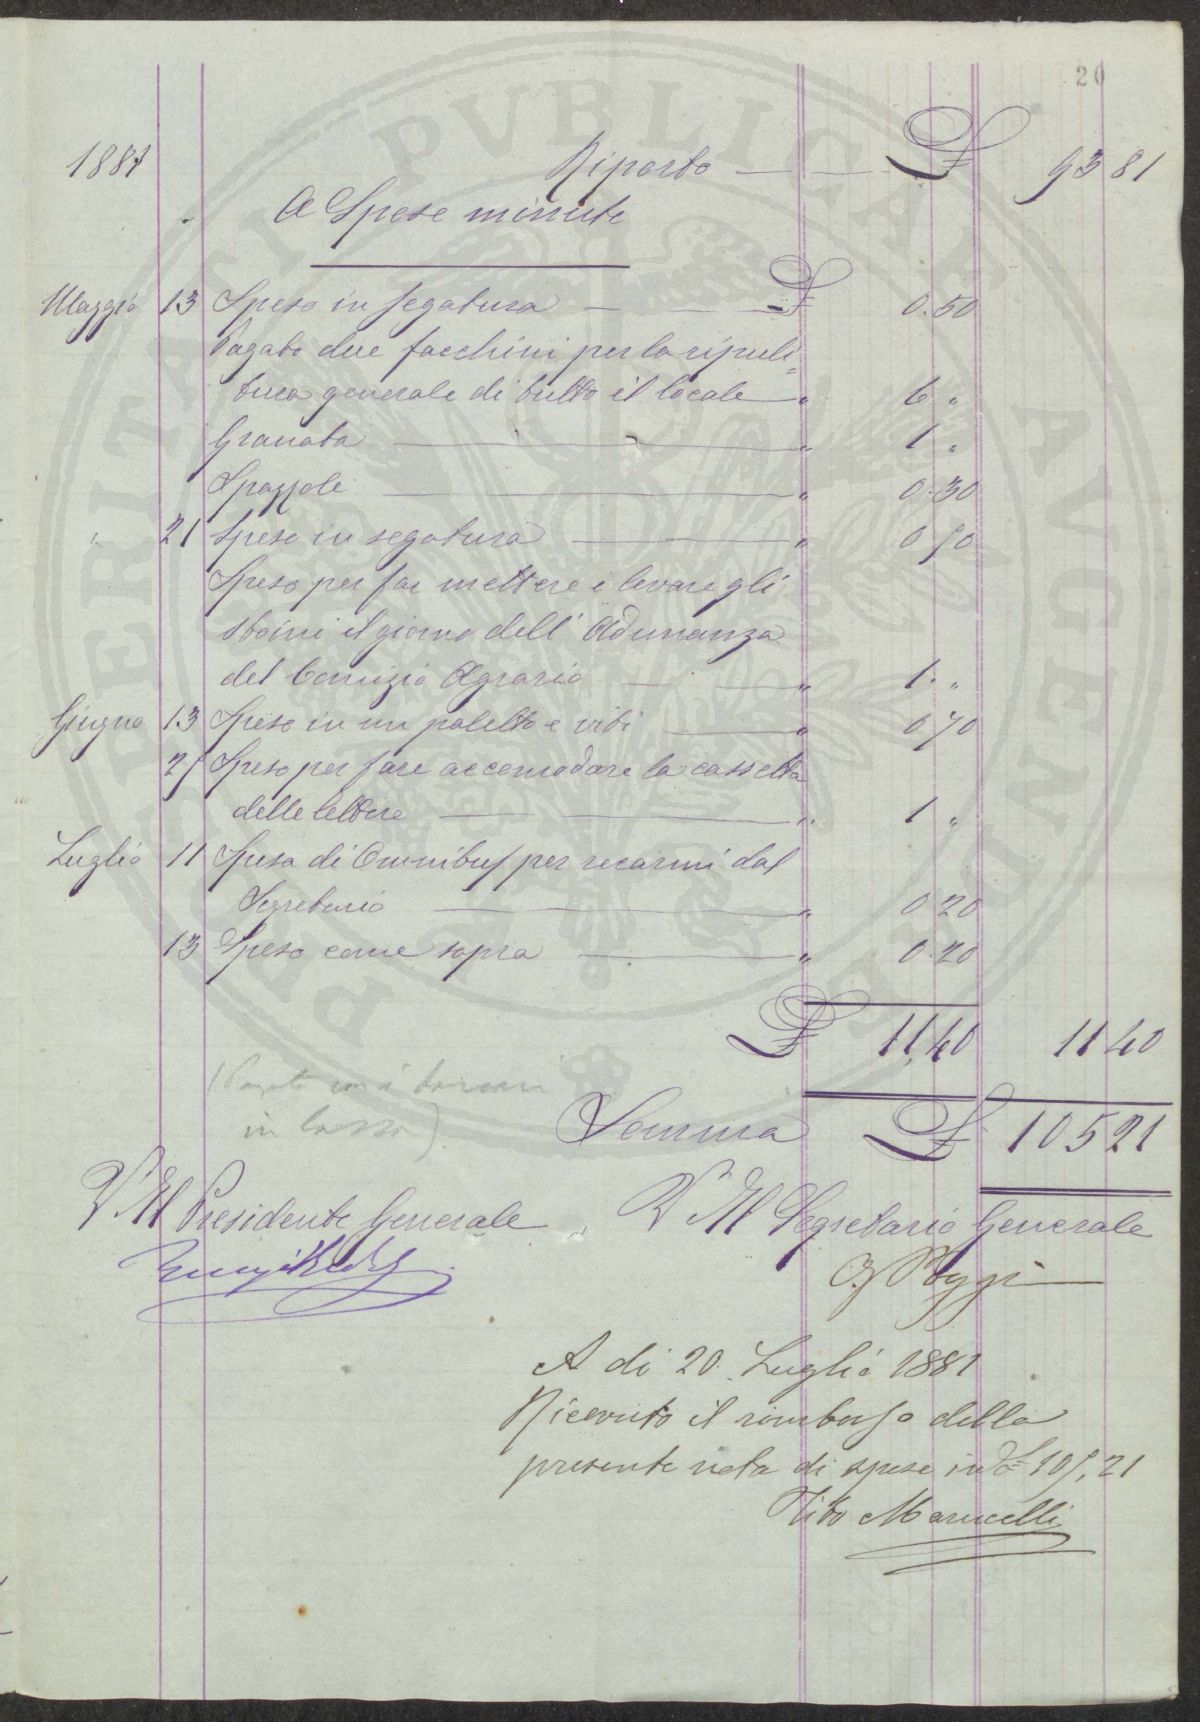 20
1881 Riporto £ 93 81
A Spese minute
Maggio 13 Speso in segatura £ 0.50
Pagato due facchini per la ripuli=
tura generale di tutto il locale " 6 "
Granata " 1 "
Spazzole " 0.30
" 21 Speso in segatura " 0 50
Speso per far mettere e levare gli
stoini il giorno dell' Adunanza
del Comizio Agrario " 1. "
Giugno 13 Speso in un paletto e viti " 0 70
25 Speso per fare accomodare la cassetta
delle lettere " 1 "
Luglio 11 Spesa di Omnibus per recarmi dal
Segretario " 0.20
13 Speso come sopra " 0.20
£ 11,40 11 40
(Pagato con i
in cassa)
Somma £ 105 21
V. Il Presidente Generale V. Il Segretario Generale
Poggi
A di 20. Luglio 1881
Ricevuto il rimborso della
presente nota di spese in £ 105,21
Tito Marucelli